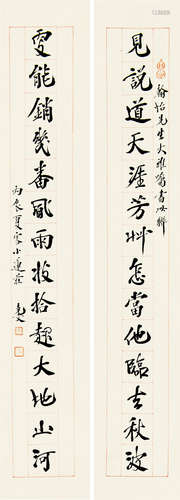 見說道天涯芳艸怎當他臨去秋波
翰怡先生大雅囑書此聯
更能銷幾番風雨收拾起大地山河
丙辰夏客小蓮莊
克文